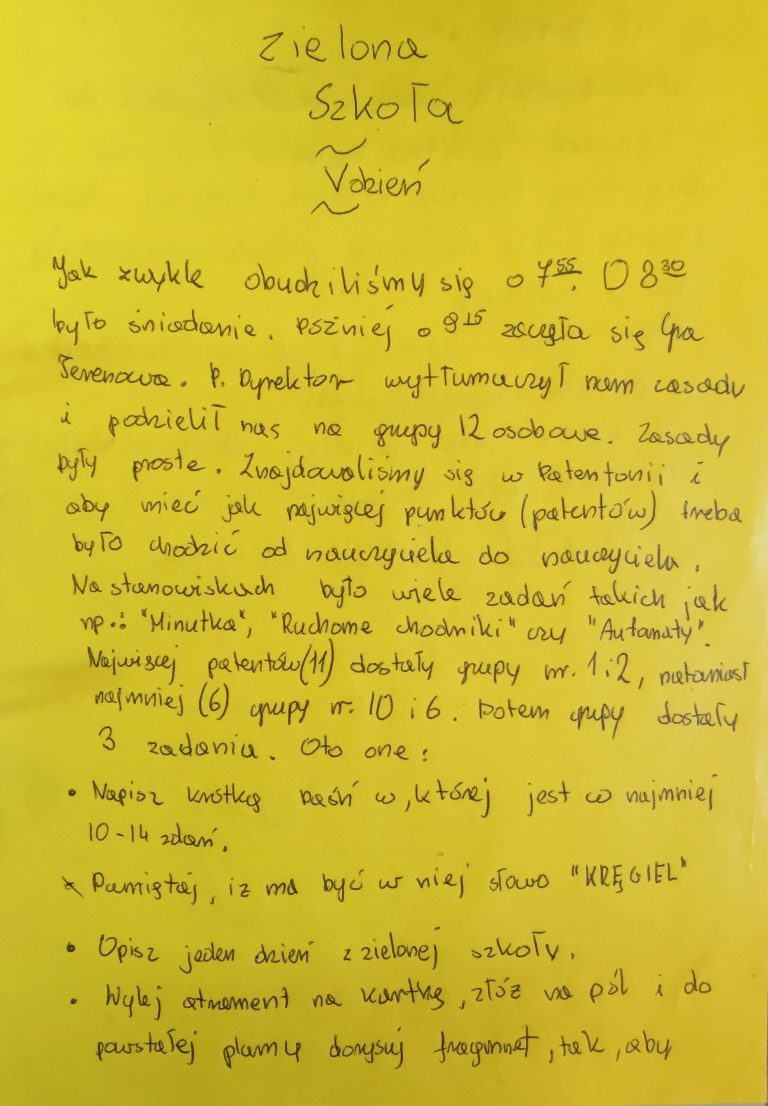 Zielona
Szkoła
V dzień
Jak zwykle obudziliśmy się o 7 55. O 8 30
było śniadanie. Pszniej o 9 15 zaczęła się Gra
Terenowa. P. Dyrektor wytłumaczył nam zasady
i podzielił nas na grupy 12 osobowe. Zasady
były proste. Znajdowaliśmy się w Patentonii i
aby mieć jak najwięcej punktów (patentów) treba
było chodzić od nauczyciela do nauczyciela.
Na stanowiskach było wiele zadań takich jak
np.: "Minutka", "Ruchome chodniki" czy "Autamaty".
Najwięcej patentów (11) dostały grupy nr. 1 i 2, natamiast
najmniej (6) grupy nr. 10 i 6. Potem grupy dostały
3 zadania. Oto one:
• Napisz krstką baśń w, której jest co najmniej
10-14 zdań.
Pamiętaj, iz ma być w niej słowo "KRĘGIEL"
• Opisz jeden dzień z zielonej szkoły.
• Wylej atrament na kartkę, złóż na pól i do
powstałej plamy dorysuj fragmnet, tak, aby